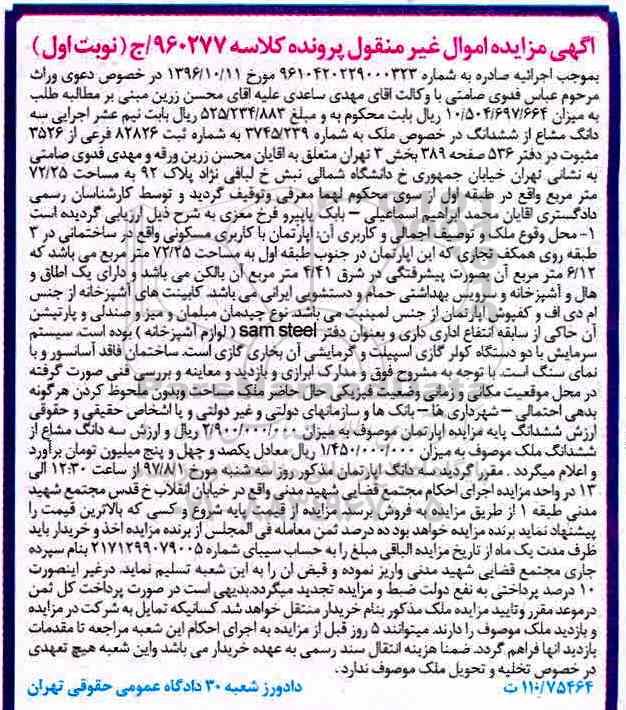 آگهی مزایده اموال غیر منقول پرونده کلاسه ۹۶۰۲۷۷/ج (نوبت اول)
بموجب اجرائیه صادره به شماره ۹۶۱۰۴۲۰۲۲۹۰۰۰۳۲۳ مورخ ۱۳۹۶/۱۰/۱۱ در خصوص دعوی وراث
مرحوم عباس فدوی صامتی با وکالت آقای مهدی ساعدی علیه آقای محسن زرین مبنی بر مطالبه طلب
به میزان ۱۰/۵۰۴/۶۹۷/۶۶۴ ریال بابت محکوم به و مبلغ ۵۲۵/۲۳۴/۸۸۳ ریال بابت نیم عشر اجرایی سه
دانگ مشاع از ششدانگ در خصوص ملک به شماره ۳۷۴۵/۲۳۹ به شماره ثبت ۸۲۸۲۶ فرعی از ۳۵۲۶
مثبوت در دفتر ۵۳۶ صفحه ۳۸۹ بخش ۳ تهران متعلق به آقایان محسن زرین ورقه و مهدی فدوی صامتی
به نشانی تهران خیابان جمهوری خ دانشگاه شمالی نبش خ لبافی نژاد پلاک ۹۲ به مساحت ۷۲/۲۵
متر مربع واقع در طبقه اول از سوی محکوم لهما معرفی وتوقیف گردید و توسط کارشناسان رسمی
دادگستری آقایان محمد ابراهیم اسماعیلی – بابک پاپیرو فرخ معزی به شرح ذیل ارزیابی گردیده است
۱- محل وقوع ملک و توصیف اجمالی و کاربری آن: آپارتمان با کاربری مسکونی واقع در ساختمانی در ۳
طبقه روی همکف تجاری که این آپارتمان در جنوب طبقه اول به مساحت ۷۲/۲۵ متر مربع می باشد که
۶/۱۲ متر مربع آن بصورت پیشرفتگی در شرق ۴/۴۱ متر مربع آن بالکن می باشد و دارای یک اطاق و
هال و آشپزخانه و سرویس بهداشتی حمام و دستشویی ایرانی می باشد. کابینت های آشپزخانه از جنس
ام دی اف و کفپوش آپارتمان از جنس لمینیت می باشد. نوع چیدمان مبلمان و میز و صندلی و پارتیشن
آن حاکی از سابقه انتفاع اداری داری و بعنوان دفتر sam steel ( لوازم آشپزخانه ) بوده است. سیستم
سرمایش با دو دستگاه کولر گازی اسپیلت و گرمایشی آن بخاری گازی است. ساختمان فاقد آسانسور و با
نمای سنگ است. با توجه به مشروح فوق و مدارک ابرازی و بازدید و معاینه و بررسی فنی صورت گرفته
در محل موقعیت مکانی و زمانی وضعیت فیزیکی حال حاضر ملک مساحت وبدون ملحوظ کردن هرگونه
بدهی احتمالی – شهرداری ها – بانک ها و سازمانهای دولتی و غیر دولتی و یا اشخاص حقیقی و حقوقی
ارزش ششدانگ پایه مزایده آپارتمان موصوف به میزان ۲/۹۰۰/۰۰۰/۰۰۰ ریال و ارزش سه دانگ مشاع از
ششدانگ ملک موصوف به میزان ۱/۴۵۰/۰۰۰/۰۰۰ ریال معادل یکصد و چهل و پنج میلیون تومان برآورد
و اعلام میگردد . مقرر گردید سه دانگ آپارتمان مذکور روز سه شنبه مورخ ۹۷/۸/۱ از ساعت ۱۲:۳۰ الی
۱۳ در واحد مزایده اجرای احکام مجتمع قضایی شهید مدنی واقع در خیابان انقلاب خ قدس مجتمع شهید
مدنی طبقه ۱ از طریق مزایده به فروش برسد. مزایده از قیمت پایه شروع و کسی که بالاترین قیمت را
پیشنهاد نماید برنده مزایده خواهد بود ده درصد ثمن معامله فی المجلس از برنده مزایده اخذ و خریدار باید
ظرف مدت یک ماه از تاریخ مزایده الباقی مبلغ را به حساب سیبای شماره ۲۱۷۱۲۹۹۰۷۹۰۰۵ بنام سپرده
جاری مجتمع قضایی شهید مدنی واریز نموده و قبض آن را به این شعبه تسلیم نماید. درغیر اینصورت
۱۰ درصد پرداختی به نفع دولت ضبط و مزایده تجدید میگردد.بدیهی است در صورت پرداخت کل ثمن
درموعد مقرر وتایید مزایده ملک مذکور بنام خریدار منتقل خواهد شد. کسانیکه تمایل به شرکت در مزایده
و بازدید ملک موصوف را دارند. میتوانند ۵ روز قبل از مزایده به اجرای احکام این شعبه مراجعه تا مقدمات
بازدید آنها فراهم گردد. ضمنا هزینه انتقال سند رسمی به عهده خریدار می باشد واین شعبه هیچ تعهدی
در خصوص تخلیه و تحویل ملک موصوف ندارد.
۱۱۰/۷۵۴۶۴ ت دادورز شعبه ۳۰ دادگاه عمومی حقوقی تهران